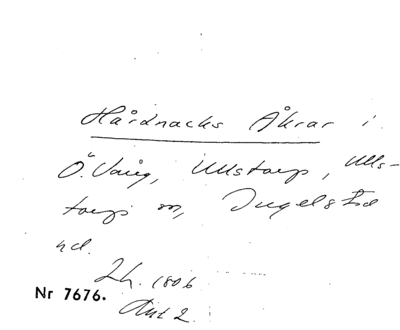 Hårdnacks Åkrar i
Ö. Vång, Ullstorp, Ulls-
torps sn, Ingelstad
hd.
Lh. 1806
Akt 2
Nr 7676.